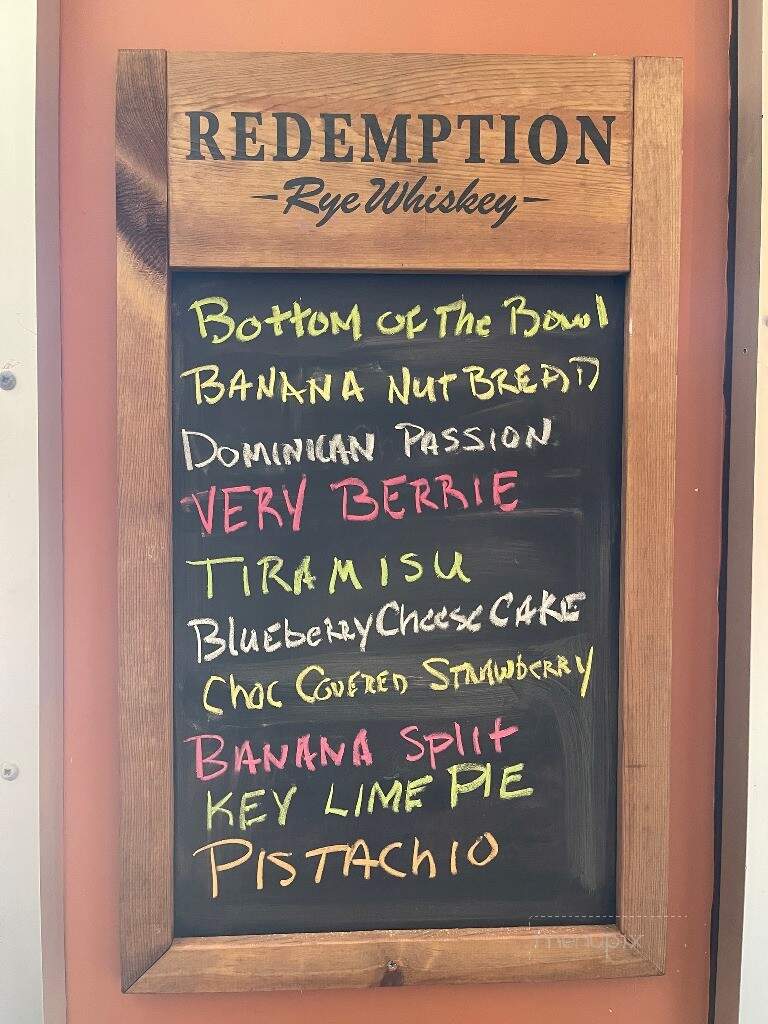 REDEMPTION
-Rye Whiskey-
Bottom of The Bowl
BANANA NUT BREAD
DOMINICAN PASSION
VERY BERRIE
TIRAMISU
Blueberry Cheese CAKE
Choc COVERED STRAWBERRY
BANANA Split
KEY LIME PIE
PISTAChIO
menupix